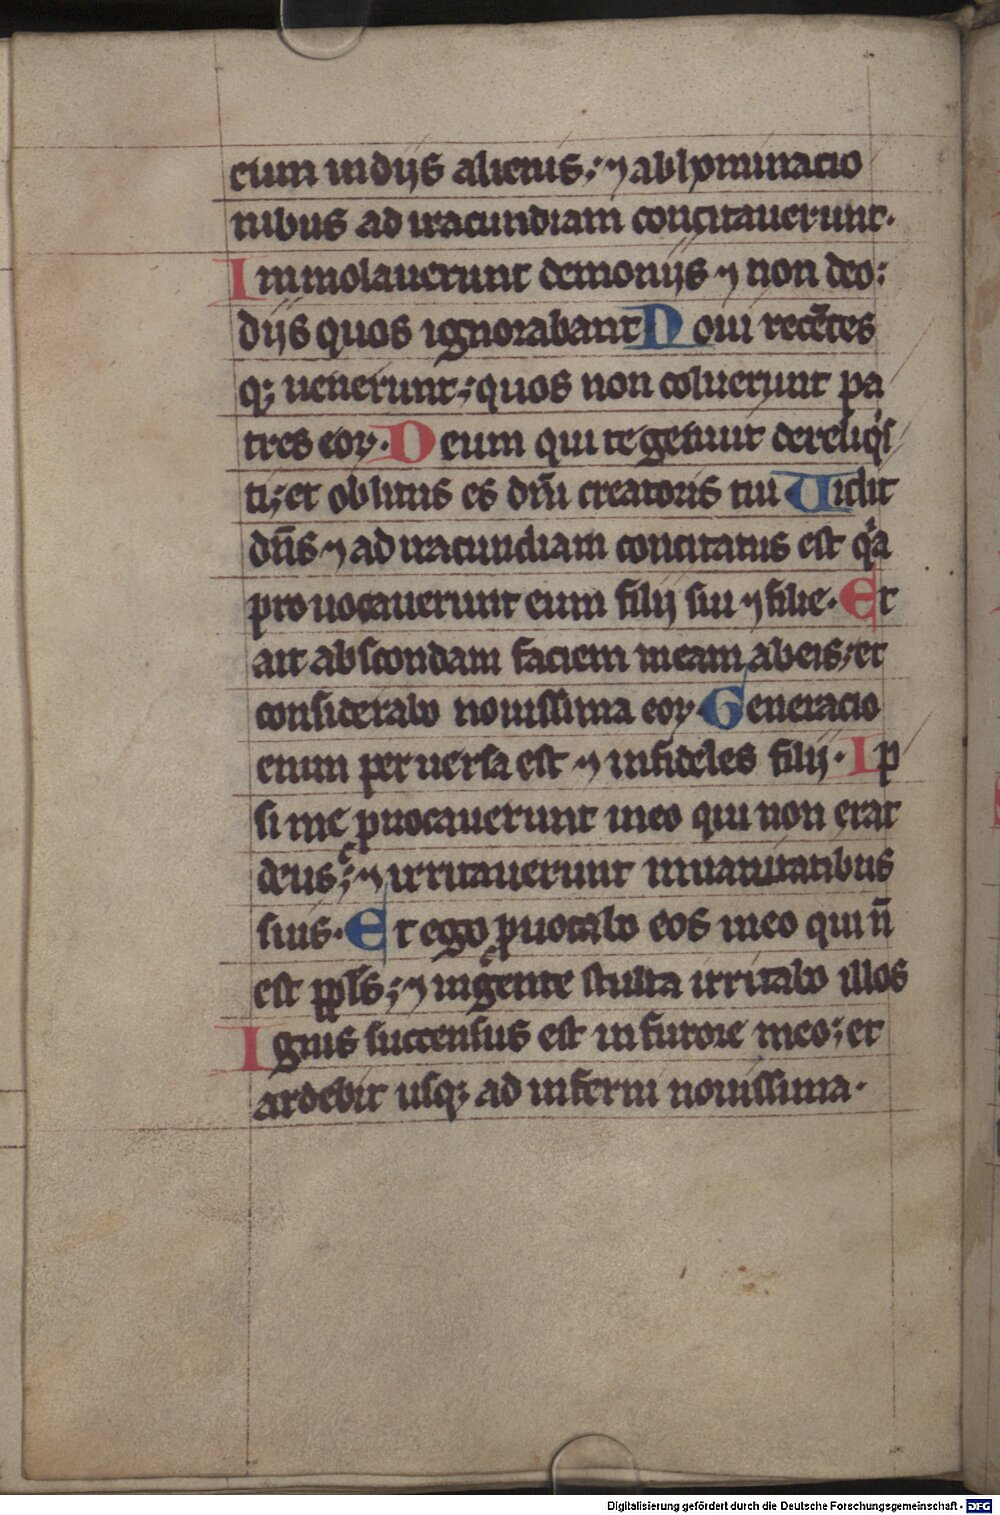 eum in dijs alienis; ⁊ abhominacio
nibus ad iracundiam concitauerunt.
Immolauerunt demonijs ⁊ non deo:
dijs quos ignorabant Noui rece̅tes
q; uenerunt; quos non coluerunt pa
tres eoꝝ. Deum qui te genuit dereliq̍s
ti; et oblitus es dn̅i creatoris tui Uidit
dn̅s ⁊ ad iracundiam concitatus est qͣa
prouocauerunt eum filij sui ⁊ filie. Et
ait abscondam faciem meam ab eis; et
considerabo nouissima eoꝝ. Generacio
enim peruersa est ⁊ infideles filij. Ip
si me ꝓuocauerunt in eo qui non erat
deus; ⁊ irritauerunt in uanitatibus
suis. Et ego ꝓuocabo eos in eo qui n̅
est ppl̅s; ⁊ in gente stulta irritabo illos
Ignis succensus est in furore meo; et
ardebit usq; ad inferni nouissima.
Digitalisierung gefördert durch die Deutsche Forschungsgemeinschaft - DFG